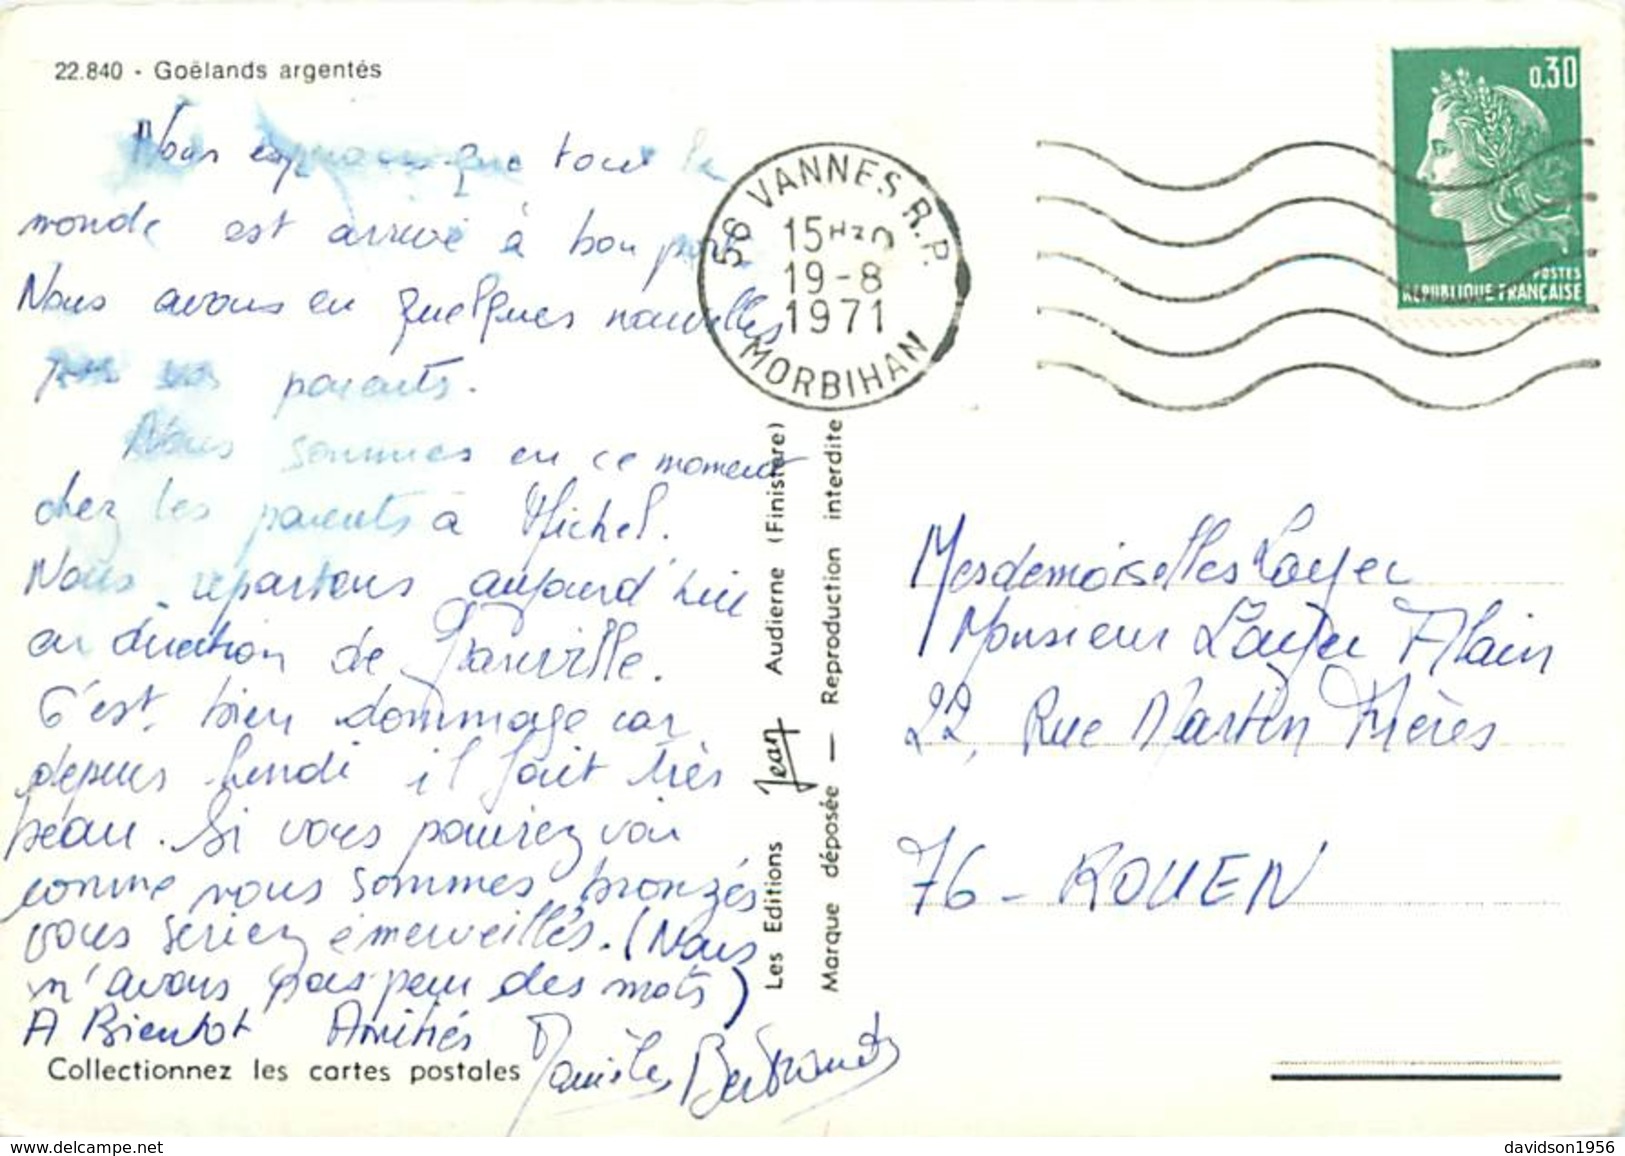 22.840 - Goëlands argentés
Nous espérons que tout le
monde est arrivé à bon port.
Nous avons eu quelques nouvelles
par vos parents.
Nous sommes en ce moment
chez les parents à Michel.
Nous repartons aujourd'hui
en direction de
C'est bien dommage car
depuis lundi il fait très
beau. Si vous pourrez voir
comme nous sommes bronzés
vous seriez émerveillés. (Nous
n'avons pas peur des mots)
A Bientot Amitiés
Danièle Bertrand
Collectionnez les cartes postales
Les Editions Jean Audierne (Finistère)
Marque déposée — Reproduction interdite
56 VANNES R.P.
15H30
19-8
1971
MORBIHAN
0,30
POSTES
REPUBLIQUE FRANÇAISE
Mesdemoiselles Layec
Monsieur Layec Alain
22, Rue Martin Frères
76 - ROUEN
davidson1956